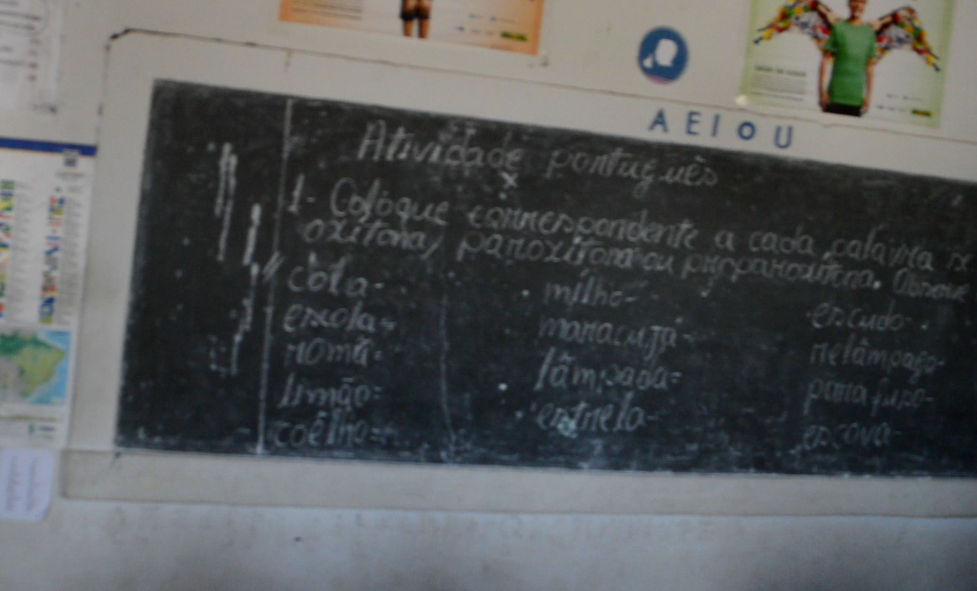 A E I O U
Atividade português
1- Coloque correspondente a cada palavra se
oxítona, paroxítona ou proparoxítona. Observe
cola- milho- escudo-
escola- maracujá- relâmpago-
romã= lâmpada= parafuso-
Irmão= estrela- escova-
coelho=